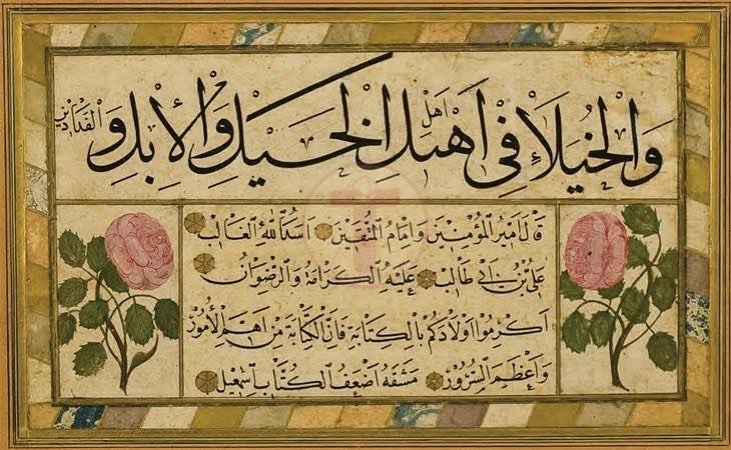 والخيلاء في اهل اهل الخيل والإبل و الفدادين
قال امير المؤمنين وامام المتقين اسد الله الغالب
علي بن ابي طالب عليه الكرامة والرضوان
اكرموا اولادكم بالكتابة فان الكتابة من اهم الأمور
واعظم السرور مشقه اضعف الكتاب اسمعيل